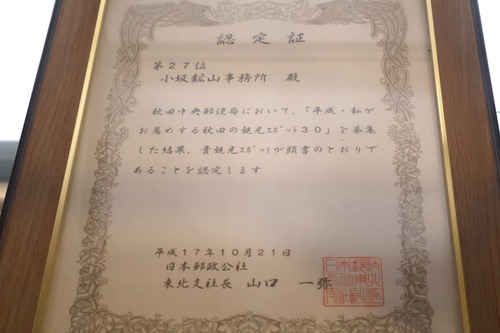 認定証
第27位
小坂鉱山事務所 殿
秋田中央郵便局において、「平成・私が
お薦めする秋田の観光スポット30」を募集
した結果、貴観光スポットが頭書のとおりで
あることを認定します
平成17年10月21日
日本郵政公社
東北支社長 山口 一弥